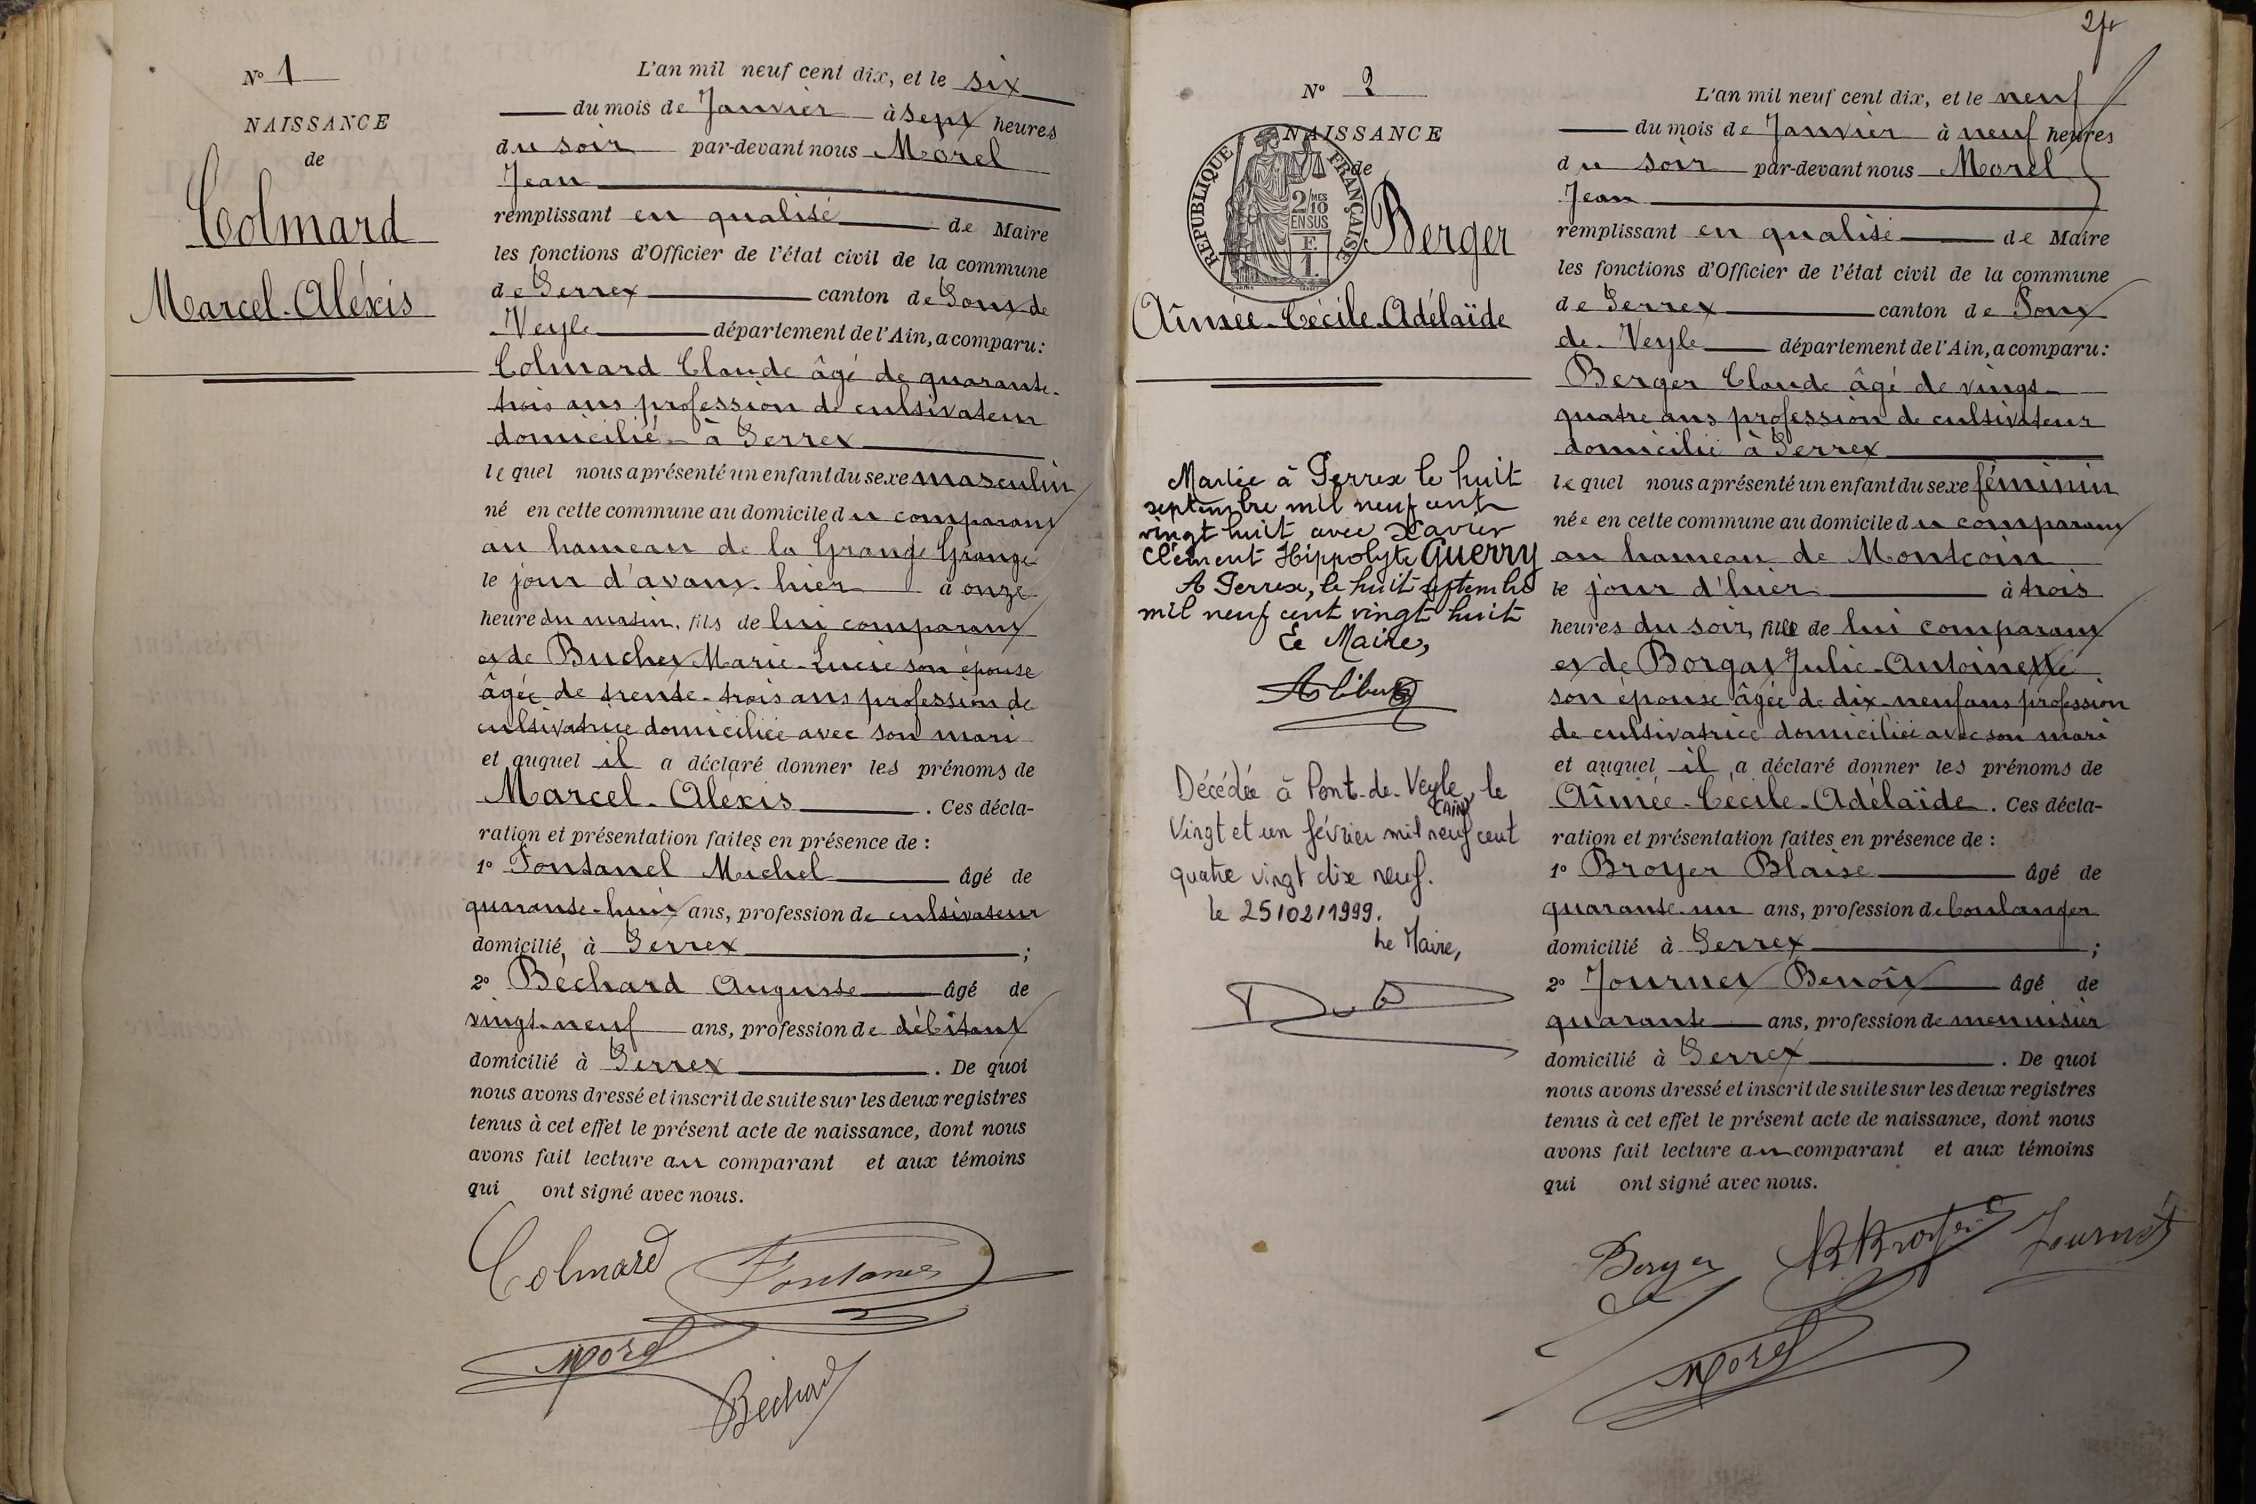 N° 1
NAISSANCE
de
Colmard
Marcel-Aléxis
L'an mil neuf cent dix, et le six
du mois de Janvier à sept heures
du soir par-devant nous Morel
Jean
remplissant en qualité de Maire
les fonctions d'Officier de l'état civil de la commune
de Perrex canton de Pont de
Veyle département de l'Ain, a comparu:
Colmard Claude âgé de quarante-
trois ans profession de cultivateur
domicilié à Perrex
lequel nous a présenté un enfant du sexe masculin
né en cette commune au domicile du comparant
au hameau de la Grange Grange
le jour d'avant-hier à onze
heure du matin, fils de lui comparant
et de Buchet Marie-Lucie son épouse
âgée de trente-trois ans profession de
cultivatrice domiciliée avec son mari
et auquel il a déclaré donner les prénoms de
Marcel-Alexis. Ces décla-
ration et présentation faites en présence de :
1° Fontanel Michel âgé de
quarante-huit ans, profession de cultivateur
domicilié, à Perrex ;
2° Béchard Auguste âgé de
vingt-neuf ans, profession de débitant
domicilié à Perrex. De quoi
nous avons dressé et inscrit de suite sur les deux registres
tenus à cet effet le présent acte de naissance, dont nous
avons fait lecture au comparant et aux témoins
qui ont signé avec nous.
Colmard Fontanel
Morel
Béchard
N° 2
NAISSANCE
de
RÉPUBLIQUE FRANÇAISE
2/10
EN SUS
Berger
Aîmée-Cécile-Adélaïde
Mariée à Perrex le huit
septembre mil neuf cent
vingt huit avec Xavier
Clément Hippolyte Guerry
A Perrex, le huit septembre
mil neuf cent vingt huit
Le Maire,
Décédée à Pont-de-Veyle, le
(AIN)
Vingt et un février mil neuf cent
quatre vingt dix neuf.
le 25/02/1999.
Le Maire,
L'an mil neuf cent dix, et le neuf
du mois de Janvier à neuf heures
du soir par-devant nous Morel
Jean
remplissant en qualité de Maire
les fonctions d'Officier de l'état civil de la commune
de Perrex canton de Pont
de Veyle département de l'Ain, a comparu:
Berger Claude âgé de vingt-
quatre ans profession de cultivateur
domicilié à Perrex
lequel nous a présenté un enfant du sexe féminin
née en cette commune au domicile du comparant
au hameau de Montcoin
le jour d'hier à trois
heures du soir, fille de lui comparant
et de Borgat Julie-Antoinette
son épouse âgée de dix-neuf ans profession
de cultivatrice domiciliée avec son mari
et auquel il a déclaré donner les prénoms de
Aîmée-Cécile-Adélaïde. Ces décla-
ration et présentation faites en présence de :
1° Broyer Blaise âgé de
quarante-un ans, profession de boulanger
domicilié à Perrex ;
2° Journet Benoît âgé de
quarante ans, profession de menuisier
domicilié à Perrex. De quoi
nous avons dressé et inscrit de suite sur les deux registres
tenus à cet effet le présent acte de naissance, dont nous
avons fait lecture au comparant et aux témoins
qui ont signé avec nous.
Berger B Broyer Journet
Morel